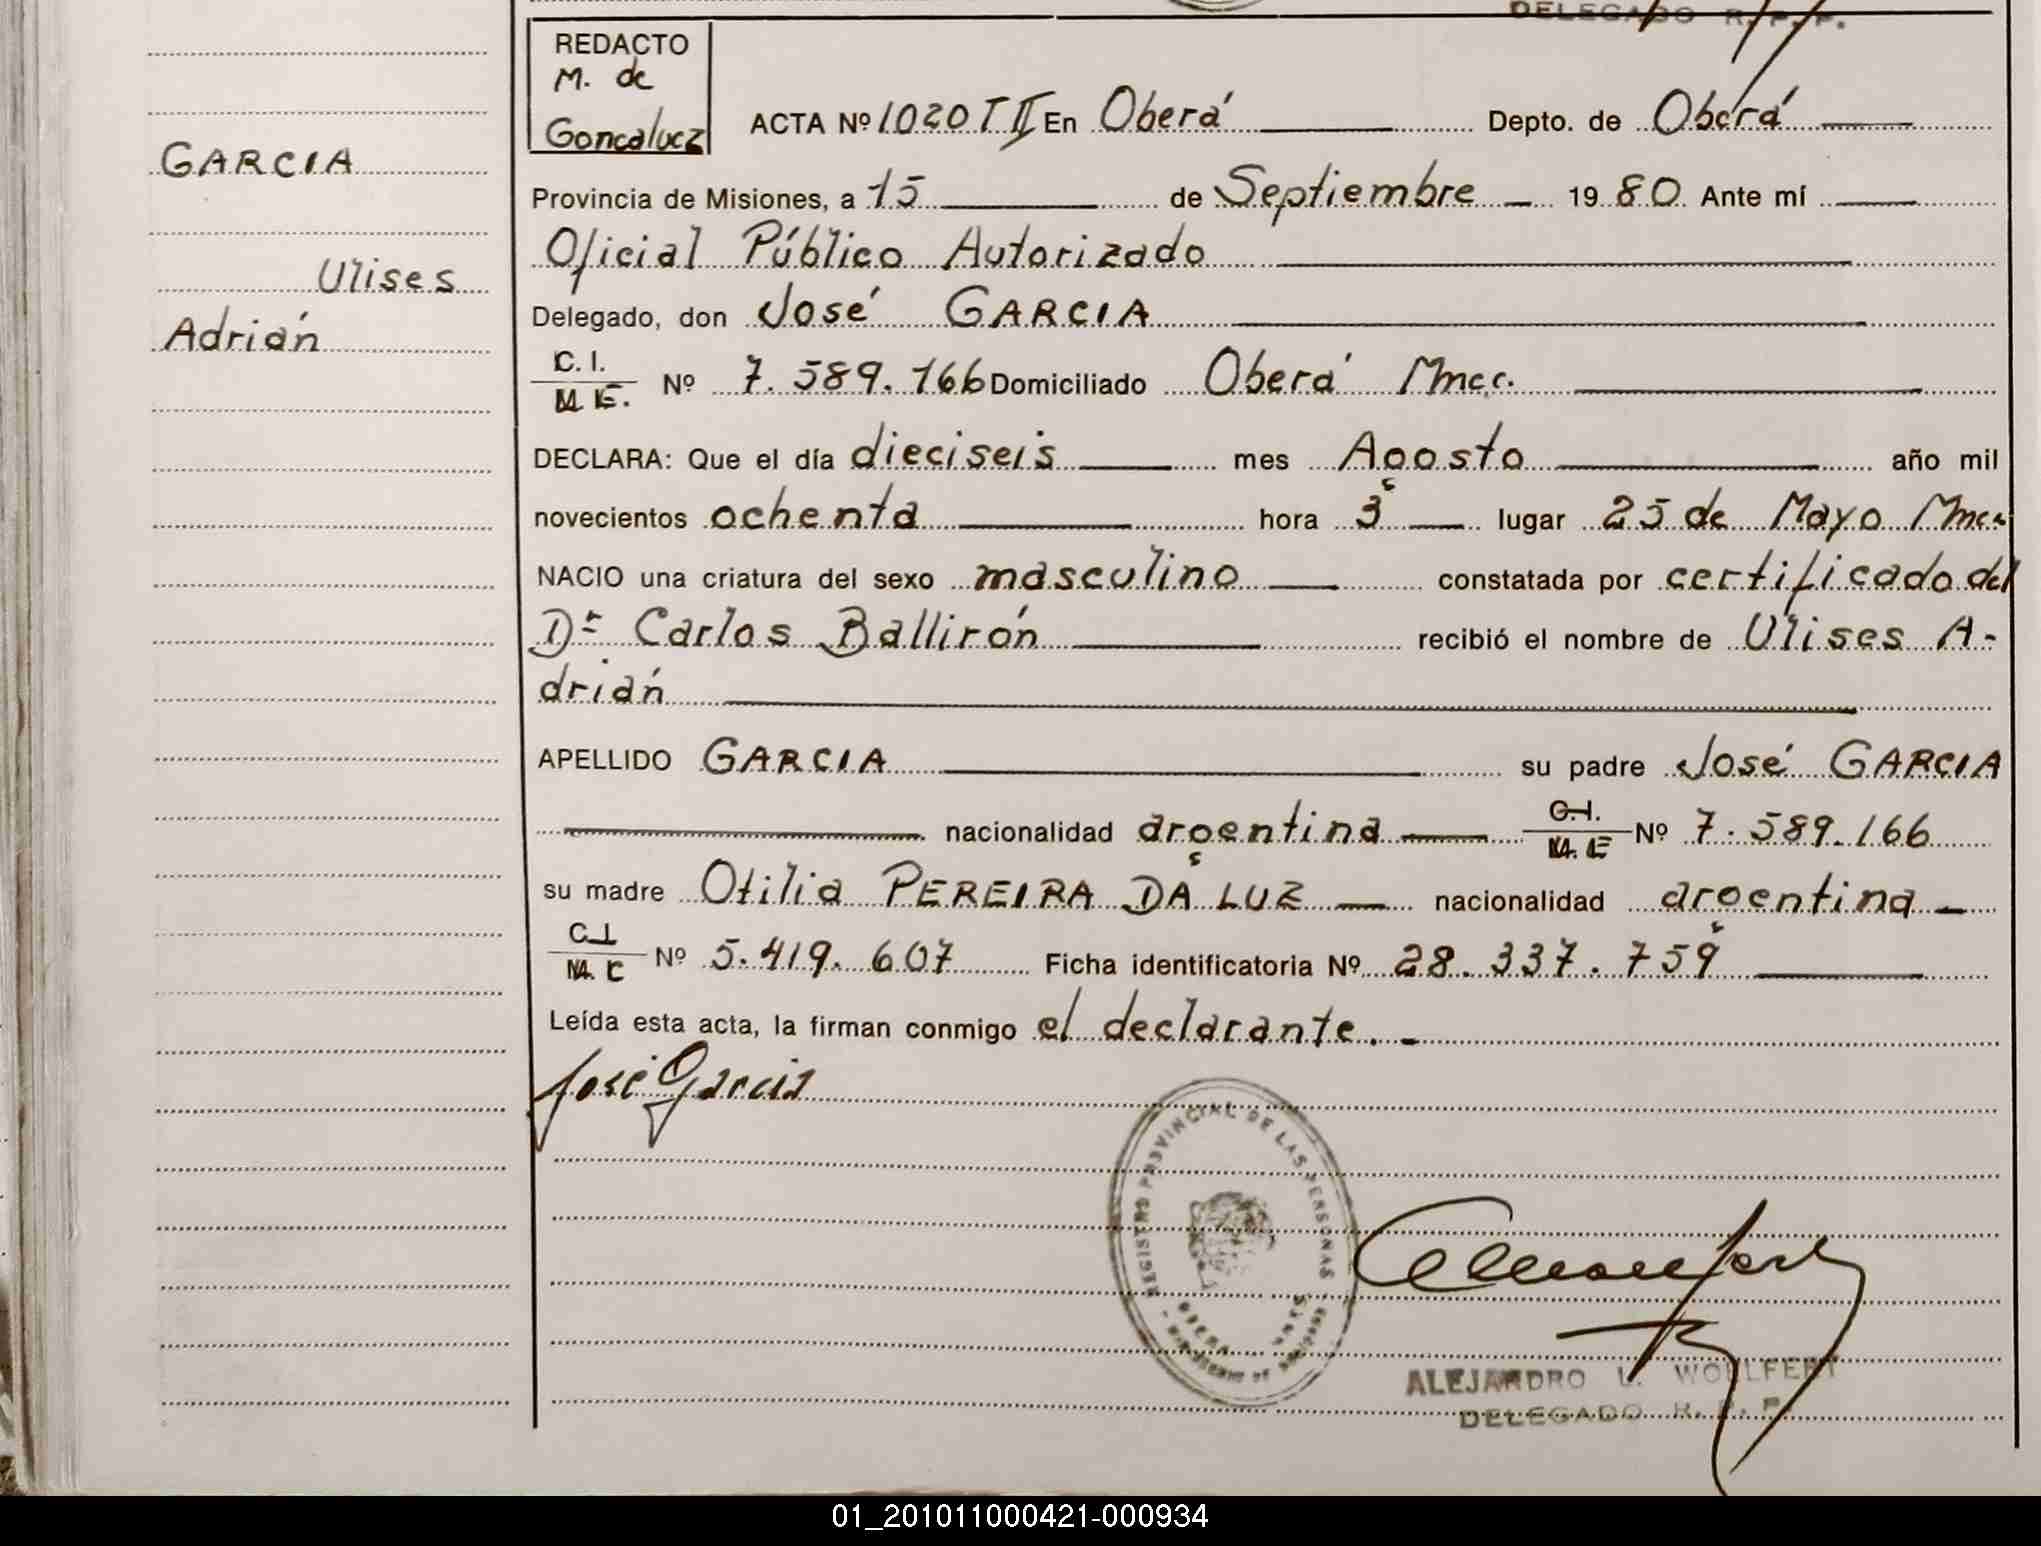 DELEGADO R. P. P.
REDACTO
M. de
Goncalvez
ACTA Nº 1020 T II En Oberá Depto. de Oberá
GARCIA
Provincia de Misiones, a 15 de Septiembre 1980 Ante mí
Oficial Público Autorizado
Ulises
Adrián
Delegado, don José GARCIA
C. I.
M. E. Nº 7.589.166 Domiciliado Oberá Mnes.
DECLARA: Que el día dieciseis mes Agosto año mil
novecientos ochenta hora 3 lugar 25 de Mayo Mnes
NACIO una criatura del sexo masculino constatada por certificado del
Dr Carlos Ballirón recibió el nombre de Ulises A-
drián
APELLIDO GARCIA su padre José GARCIA
nacionalidad argentina C.I. M. E Nº 7.589.166
su madre Otilia PEREIRA DA LUZ nacionalidad argentina
C I
M. C Nº 5.419.607 Ficha identificatoria Nº 28.337.759
Leída esta acta, la firman conmigo el declarante.-
José Garcia
REGISTRO PROVINCIAL DE LAS PERSONAS
ALEJANDRO L. WOLLFERT
DELEGADO R. P. P.
01_201011000421-000934